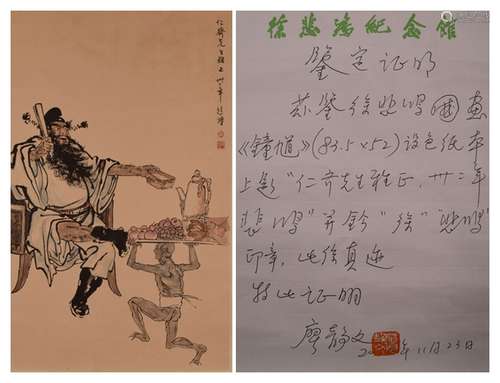 仁齊先生雅正 卅二年 悲鴻
徐悲鴻紀念館
鉴定证明
兹鉴徐悲鸿国画
《鍾馗》(83.5×52)设色纸本
上题"仁齐先生雅正,卅二年
悲鸿"并钤"徐""悲鸿"
印章,此徐真迹
特此证明
廖静文
年11月23日